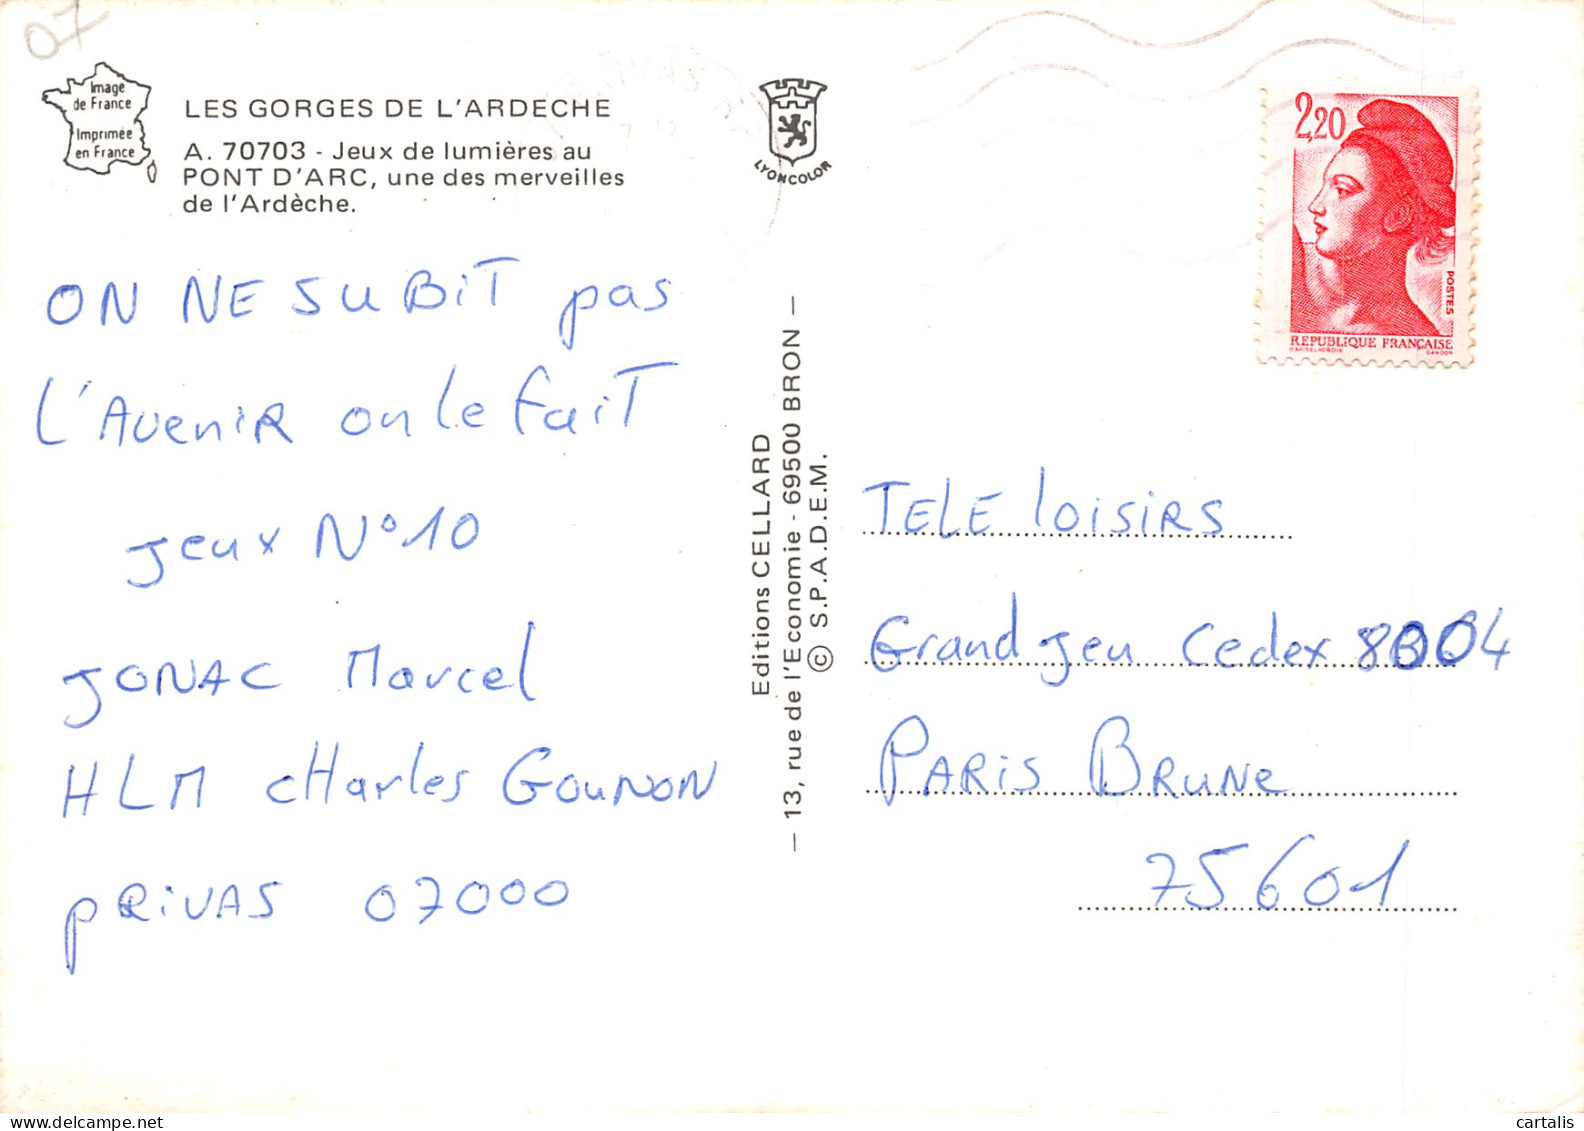 07
Image
de France
Imprimée
en France
LES GORGES DE L'ARDECHE
A. 70703 - Jeux de lumières au
PONT D'ARC, une des merveilles
de l'Ardèche.
ON NE SUBIT pas
L'AVENIR on le fait
jeux N°10
JONAC Marcel
HLM CHarles GOUNON
PRIVAS 07000
LYONCOLOR
Editions CELLARD
— 13, rue de l'Economie - 69500 BRON —
© S.P.A.D.E.M.
2,20
POSTES
REPUBLIQUE FRANÇAISE
D'AP. DELACROIX
GANDON
TELE LOISIRS
Grand jeu Cedex 8004
PARIS BRUNE
75601
cartalis